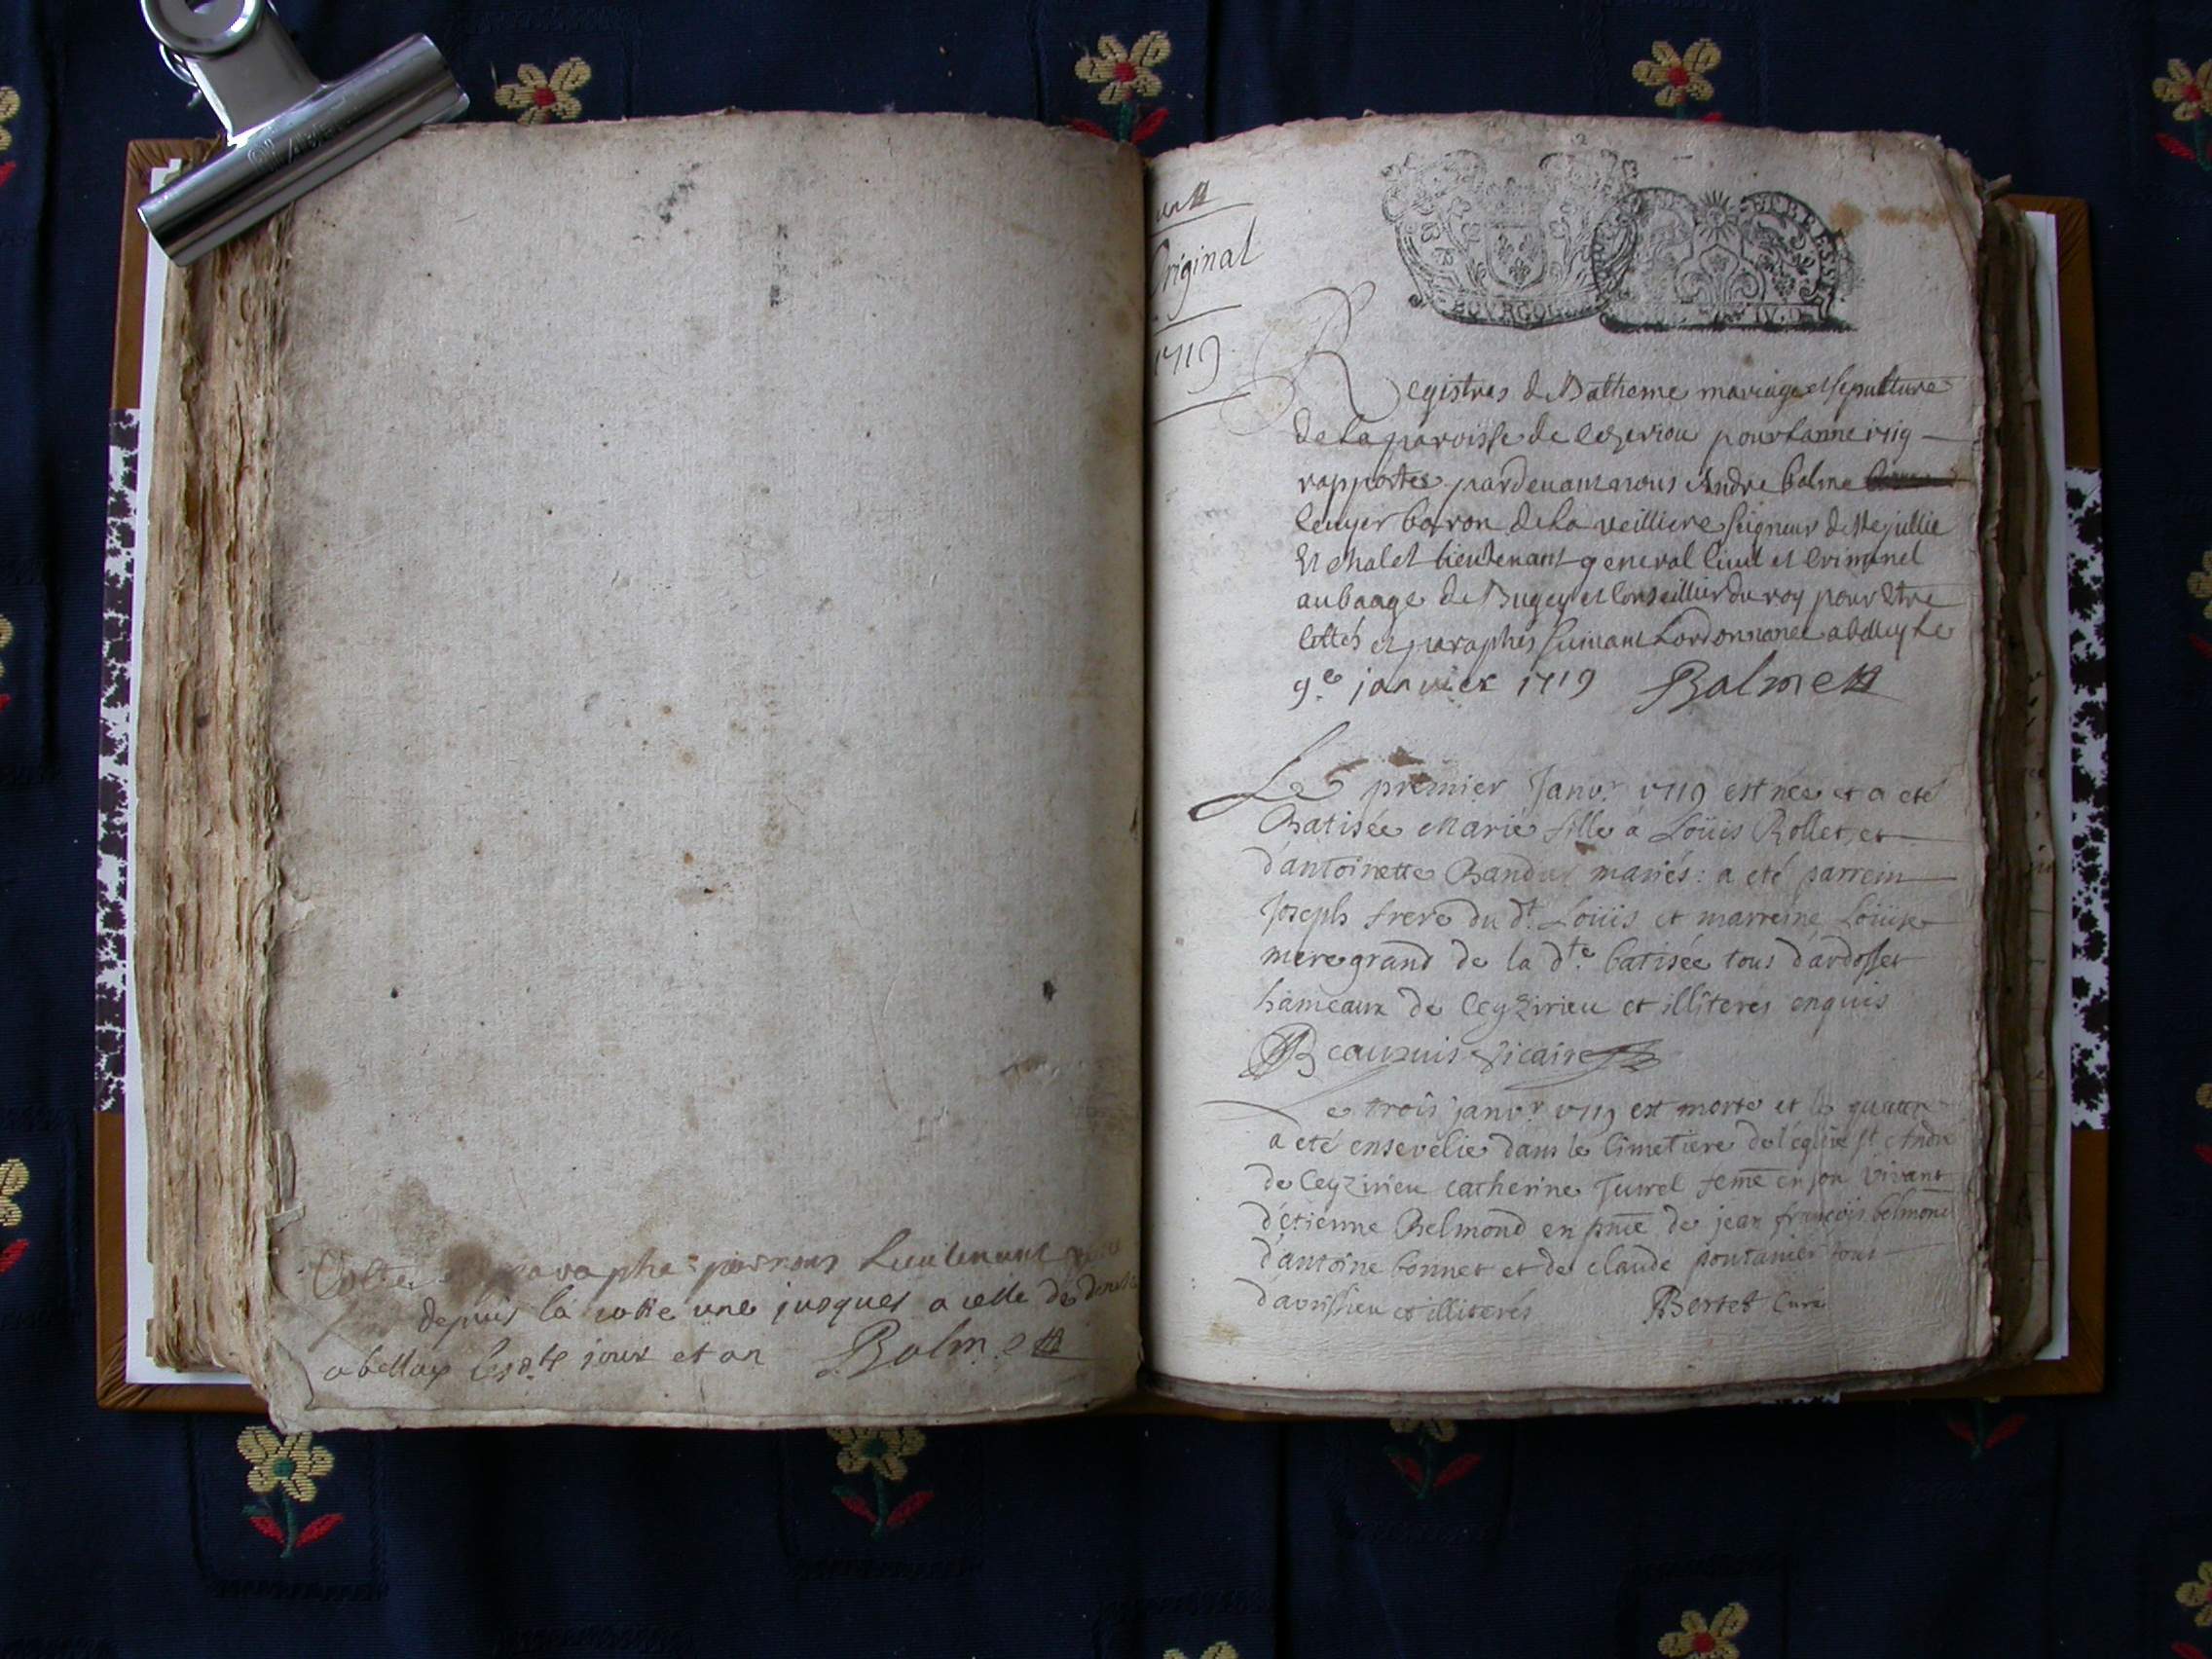 Cotté et paraphé par nous Lieutenant
depuis la cotte une jusques a celle de
a bellay les dt jour et an Balme
un
Original
1719
BOURGOG
Registres de Batheme mariage et sepulture
de la paroisse de Ceyzeriou pour lanne 1719
rapportes pardevant nous Andre balme
Ecuyer baron de la veilliere seigneur de Ste jullie
Et chalet lieutenant general Civil et Criminel
au baage de Bugey et Conseillier du roy pour Etre
Cottés et paraphés suivant Lordonnance a belley Le
9e janvier 1719 Balme
Le premier Janvr 1719 est née et a eté
Batisée Marie fille a Loüis Rollet, et
d'antoinette mariés: a eté parrein
Joseph frere du dt. Loüis et marreine Loüise
meregrand de la dte. batisée tous d'ardosset
hameaux de Ceyzirieu et illiterés enquis
Beaupuis Vicaire
Le trois janvr 1719 est morte et le
a eté ensevelie dans le Cimetiere de l'eglise st André
de Ceyzirieu catherine Juvel feme en son vivant
d'étienne Belmond en pnce de jean françois belmond
d'antoine bonnet et de claude tous
d'avrissieu et illiterés Bertet Curé